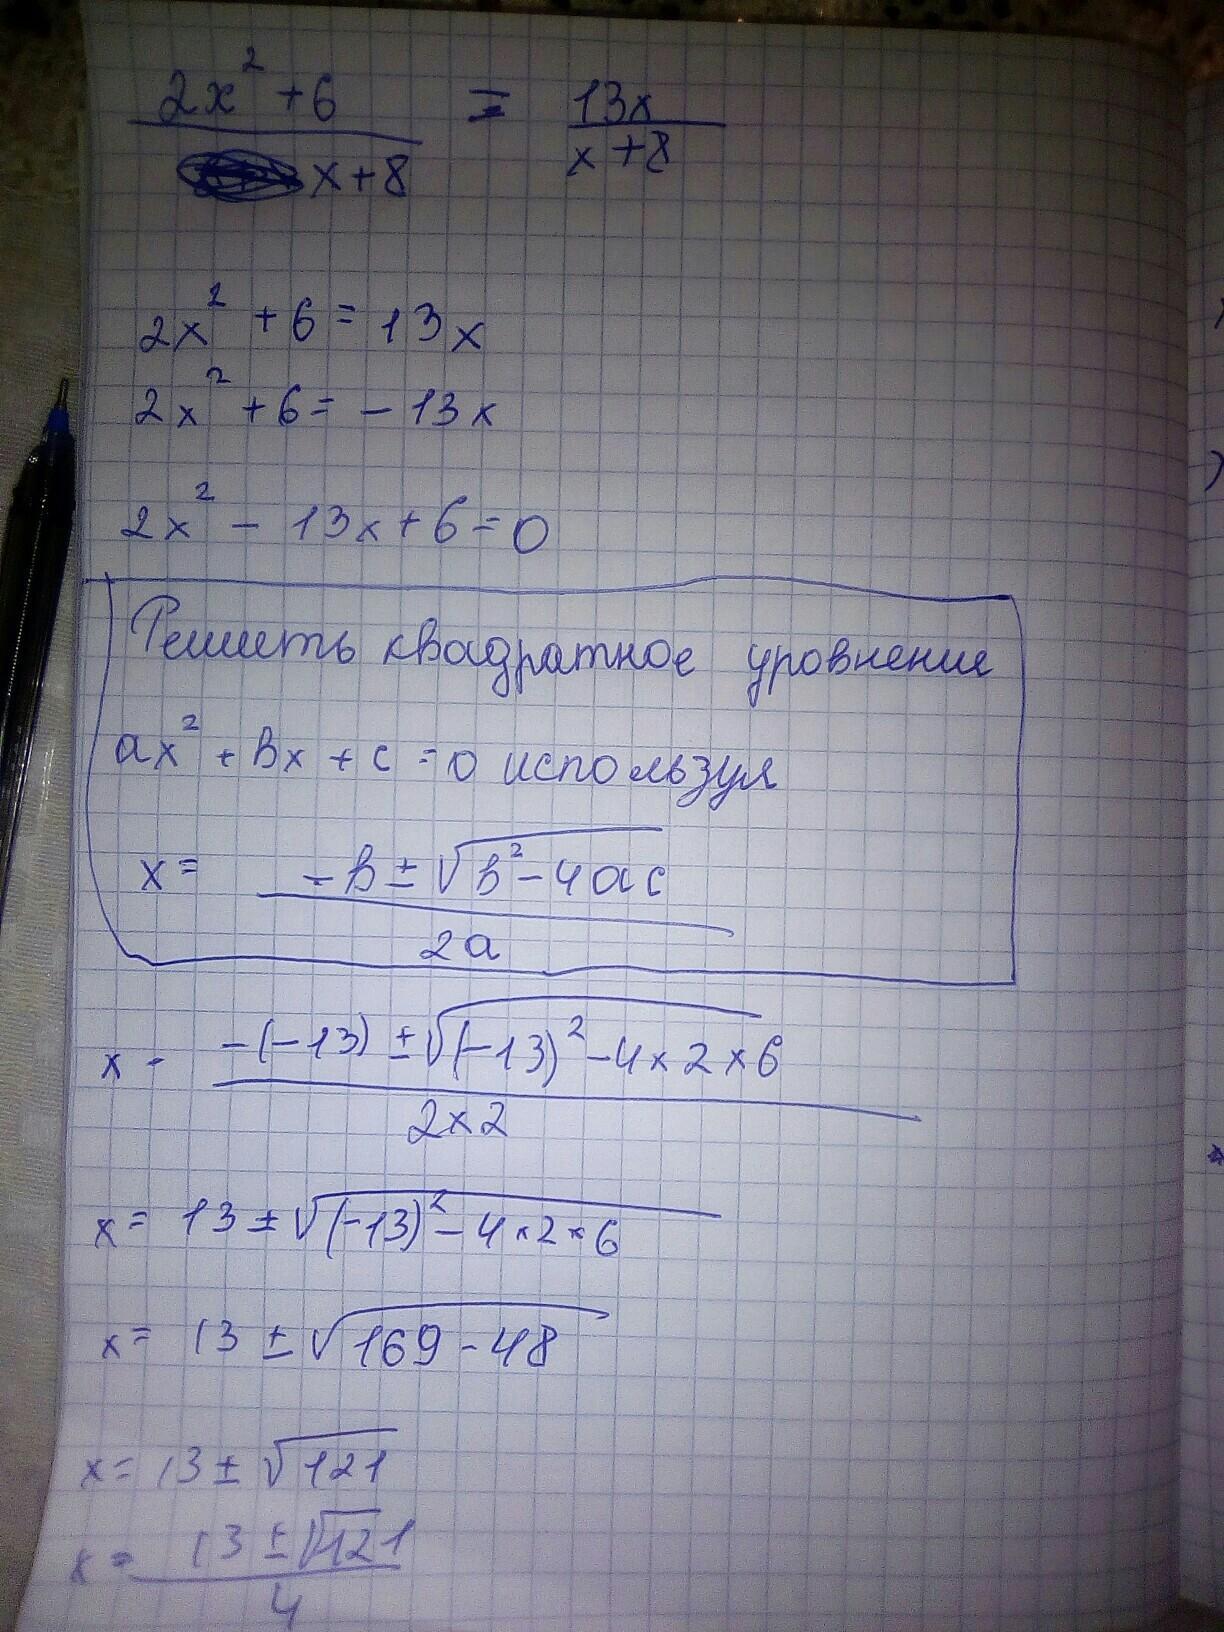 2x² + 6 / x + 8 = 13x / x + 8
2x² + 6 = 13x
2x² + 6 = - 13x
2x² - 13x + 6 = 0
Решить квадратное уровнение
ax² + bx + c = 0 используя
x = -b ± √b² - 4ac / 2a
x - -(-13) ± √(-13)² - 4 × 2 × 6 / 2 × 2
x = 13 ± √(-13)² - 4 × 2 × 6
x = 13 ± √169 - 48
x = 13 ± √121
x = 13 ± √121 / 4